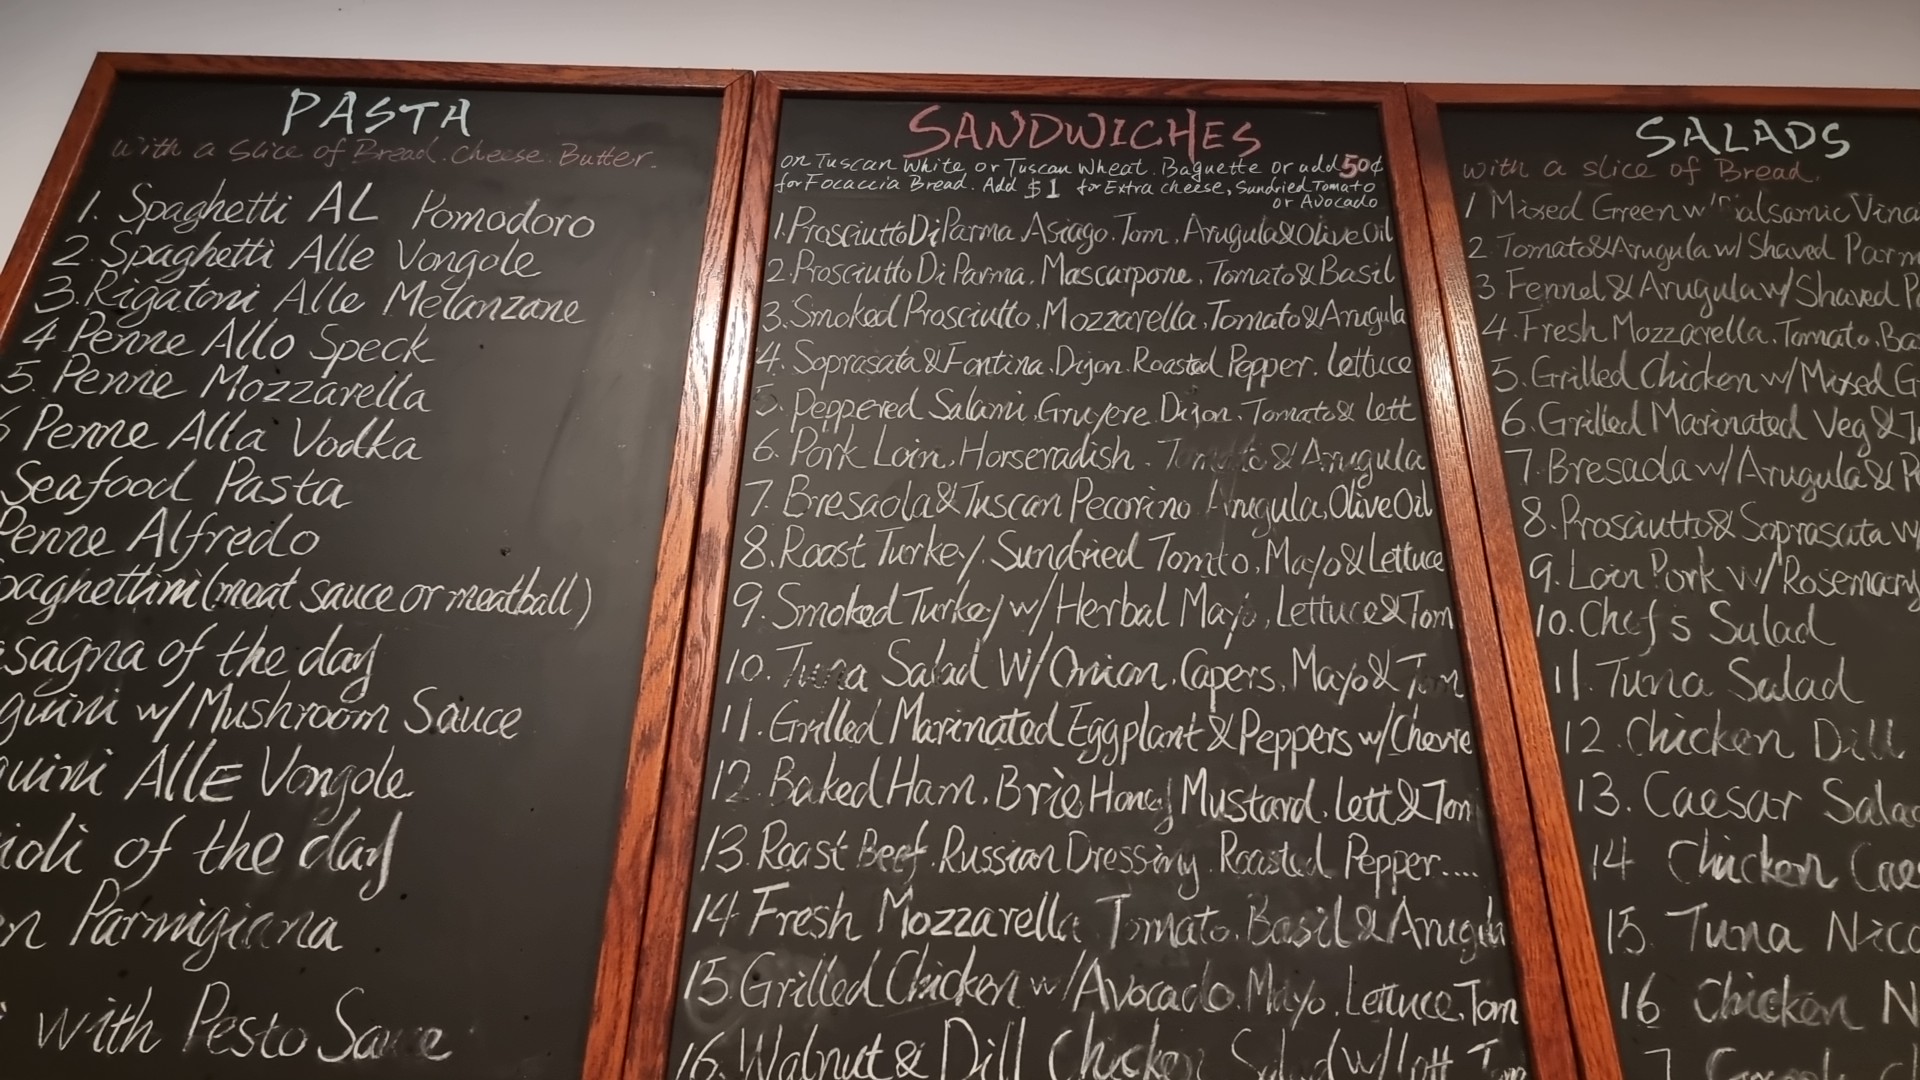 PASTA
with a slice of Bread. Cheese. Butter.
1. Spaghetti AL Pomodoro
2. Spaghetti Alle Vongole
3. Rigatoni Alle Melanzane
4 Penne Allo Speck
5. Penne Mozzarella
6 Penne Alla Vodka
Seafood Pasta
Penne Alfredo
paghettini (meat sauce or meatball)
sagna of the day
guini w/ Mushroom Sauce
uini AllE Vongole
ioli of the day
n Parmigiana
with Pesto Sauce
SANDWICHES
on Tuscan White or Tuscan Wheat. Baguette or add 50¢
for Focaccia Bread. Add $1 for Extra cheese, Sundried Tomato
or Avocado
1. Prosciutto Di Parma, Asiago. Tom, Arugula & Olive Oil
2. Prosciutto Di Parma, Mascarpone, Tomato & Basil
3. Smoked Prosciutto, Mozzarella, Tomato & Arugula
4. Soprasata & Fontina. Dijon. Roasted Pepper. Lettuce
5. Peppered Salami, Gruyere. Dijon. Tomato & Lett
6. Pork Loin, Horseradish. Tomato & Arugula
7. Bresaola & Tuscan Pecorino Arugula, Olive Oil
8. Roast Turkey. Sundried Tomto, Mayo & Lettuce
9. Smoked Turkey w/ Herbal Mayo, Lettuce & Tom
10. Tuna Salad W/ Onion, Capers, Mayo & Tom
11. Grilled Marinated Eggplant & Peppers w/ Chevre
12. Baked Ham, Brie Honey Mustard, Lett & Tom
13. Roast Beef. Russian Dressing. Roasted Pepper....
14 Fresh Mozzarella Tomato, Basil & Arugula
15. Grilled Chicken w/ Avocado. Mayo. Lettuce, Tom
16. Walnut & Dill Chicken Salad w/ Lett Tom
SALADS
with a slice of Bread.
1 Mixed Green w/ Balsamic Vina
2. Tomato & Arugula w/ Shaved Parm
3 Fennel & Arugula w/ Shaved P
4. Fresh Mozzarella. Tomato. Ba
5. Grilled Chicken w/ Mixed G
6. Grilled Marinated Veg &
7. Bresaola w/ Arugula & P
8. Prosciutto & Soprasata w
9. Loin Pork w/ Rosemary
10. Chef's Salad
11. Tuna Salad
12. Chicken Dill
13. Caesar Salad
14 Chicken Cae
15. Tuna Nico
16 Chicken N